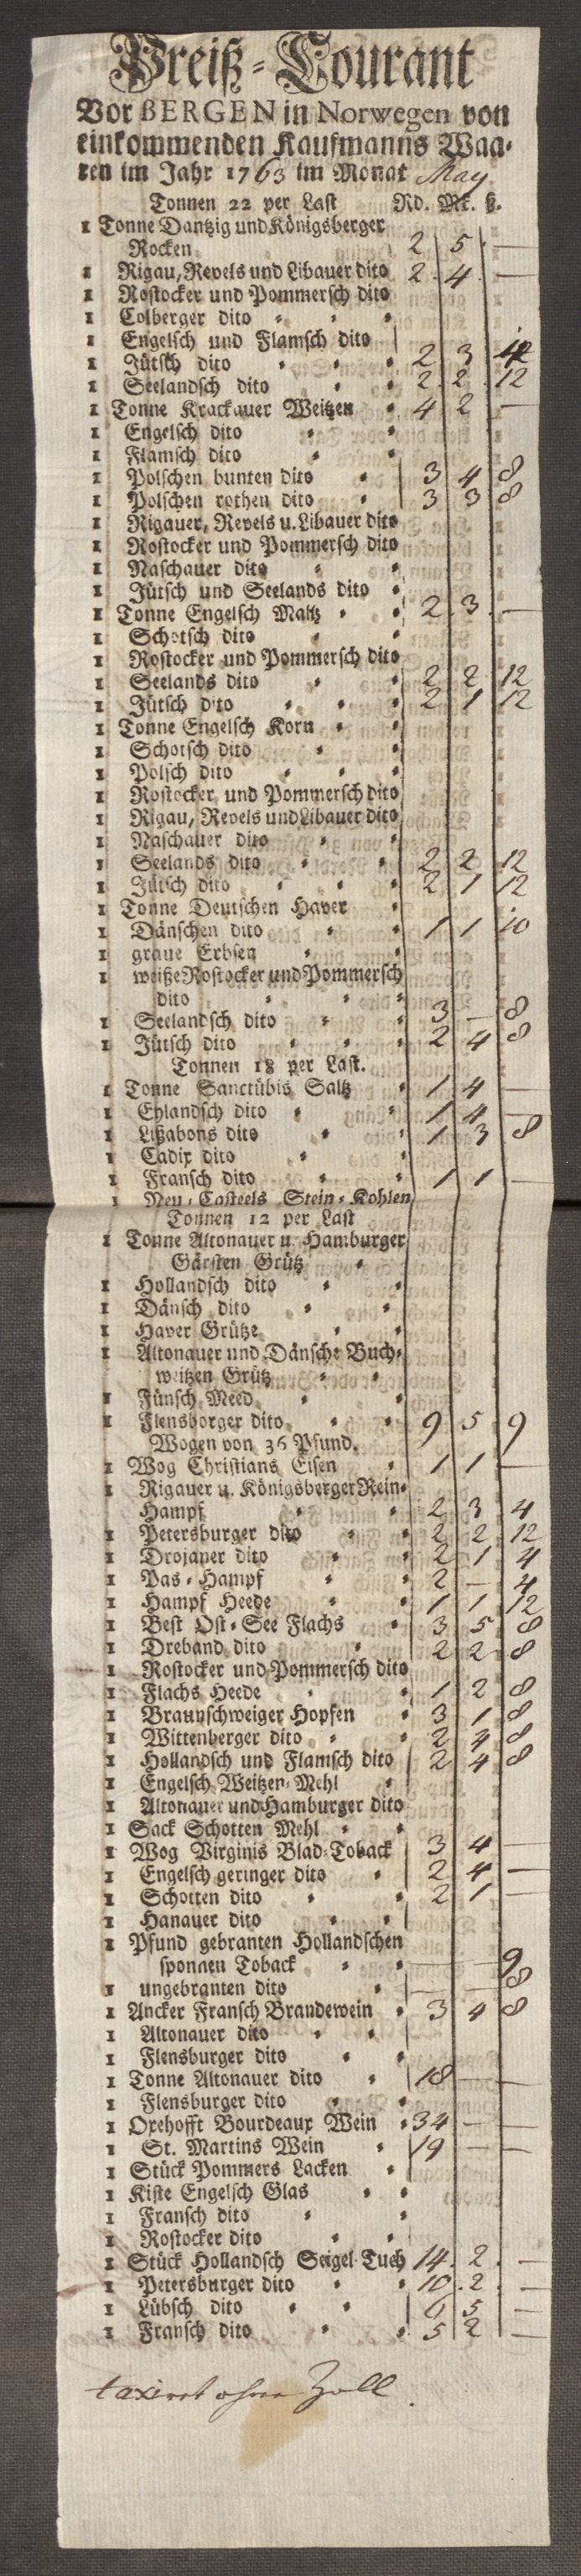 Preiß-Courant
Vor BERGEN in Norwegen von
einkommenden Kaufmanns Waa-
ren im Jahr 1763 im Monat May
Tonnen 22 per Last Rd. Mk. ß.
1 Tonne Dantzig und Königsberger
Rocken 2 5 —
1 Rigau, Revels und Libauer dito 2 4 —
1 Rostocker und Pommersch dito
1 Colberger dito
1 Engelsch und Flamsch dito
1 Jütsch dito 2 3 12
1 Seelandsch dito 2 2 12
1 Tonne Krackauer Weitzen 4 2 —
1 Engelsch dito
1 Flamsch dito
1 Polschen bunten dito 3 4 8
1 Polschen rothen dito 3 3 8
1 Rigauer, Revels u. Libauer dito
1 Rostocker und Pommersch dito
1 Naschauer dito
1 Jütsch und Seelands dito
1 Tonne Engelsch Maltz 2 3 —
1 Schotsch dito
1 Rostocker und Pommersch dito
1 Seelands dito 2 2 12
1 Jütsch dito 2 1 12
1 Tonne Engelsch Korn
1 Schotsch dito
1 Polsch dito
1 Rostocker und Pommersch dito
1 Rigau, Revels und Libauer dito
1 Naschauer dito
1 Seelands dito 2 2 12
1 Jütsch dito 2 1 12
1 Tonne Deutschen Haver
1 Dänschen dito 1 1 10
1 graue Erbsen
1 weiße Rostocker und Pommersch
dito
1 Seelandsch dito 3 — 8
1 Jütsch dito 2 4 8
Tonnen 18 per Last.
1 Tonne Sanctübis Saltz 1 4 —
1 Eylandsch dito 1 4 —
1 Lißabons dito 1 3 8
1 Cadix dito
1 Fransch dito 1 1 —
1 Neu-Casteels Stein-Kohlen
Tonnen 12 per Last
1 Tonne Altonauer u. Hamburger
Gärsten Grütz
1 Hollandsch dito
1 Dänsch dito
1 Haver Grütze
1 Altonauer und Dänsche Buch-
weitzen Grütz
1 Fünsch Meed
1 Flensborger dito 9 5 9
Wogen von 36 Pfund.
1 Wog Christians Eisen 1 1 —
1 Rigauer u. Königsberger Rein-
Hampf 2 3 4
1 Petersburger dito 2 2 12
1 Drojaner dito 2 1 4
1 Pas-Hampf 2 — 4
1 Hampf Heede 1 1 12
1 Best Ost-See Flachs 3 5 8
1 Dreband dito 2 2 8
1 Rostocker und Pommersch dito
1 Flachs Heede 1 2 8
1 Braunschweiger Hopfen 3 1 8
1 Wittenberger dito 2 4 8
1 Hollandsch und Flamsch dito 2 4 8
1 Engelsch Weitzen-Mehl
1 Altonauer und Hamburger dito
1 Sack Schotten Mehl
1 Wog Virginis Blad-Toback 3 4 —
1 Engelsch geringer dito 2 4 —
1 Schotten dito 2 1 —
1 Hanauer dito
1 Pfund gebranten Hollandschen
sponnen Toback — — 9
1 ungebranten dito — — 8
1 Ancker Fransch Brandewein 3 4 8
1 Altonauer dito
1 Flensburger dito
1 Tonne Altonauer dito 18 — —
1 Flensburger dito
1 Oxehofft Bourdeaux Wein 34 — —
1 St. Martins Wein 19 — —
1 Stück Pommers Lacken
1 Kiste Engelsch Glas
1 Fransch dito
1 Rostocker dito
1 Stück Hollandsch Seigel-Tuch 14 2 —
1 Petersburger dito 10 2 —
1 Lübsch dito 6 5 —
1 Fransch dito 5 2 —
taxiret ohne Zoll